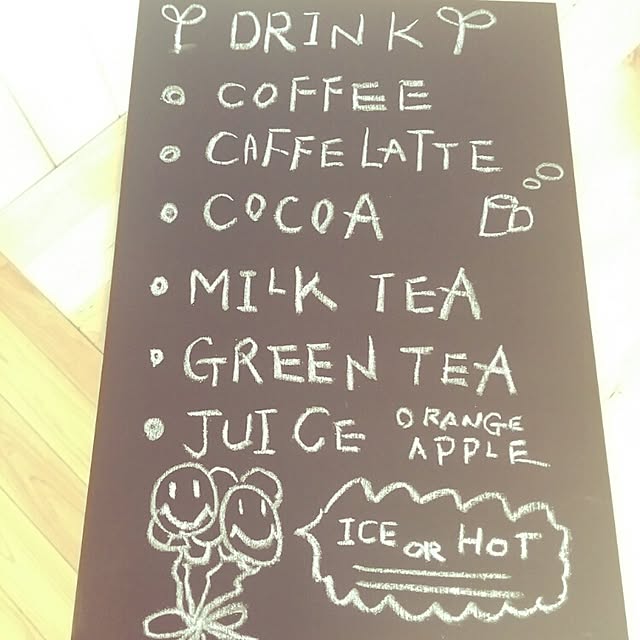 DRINK
COFFEE
CAFFE LATTE
COCOA
MILK TEA
GREEN TEA
JUICE ORANGE
APPLE
ICE OR HOT